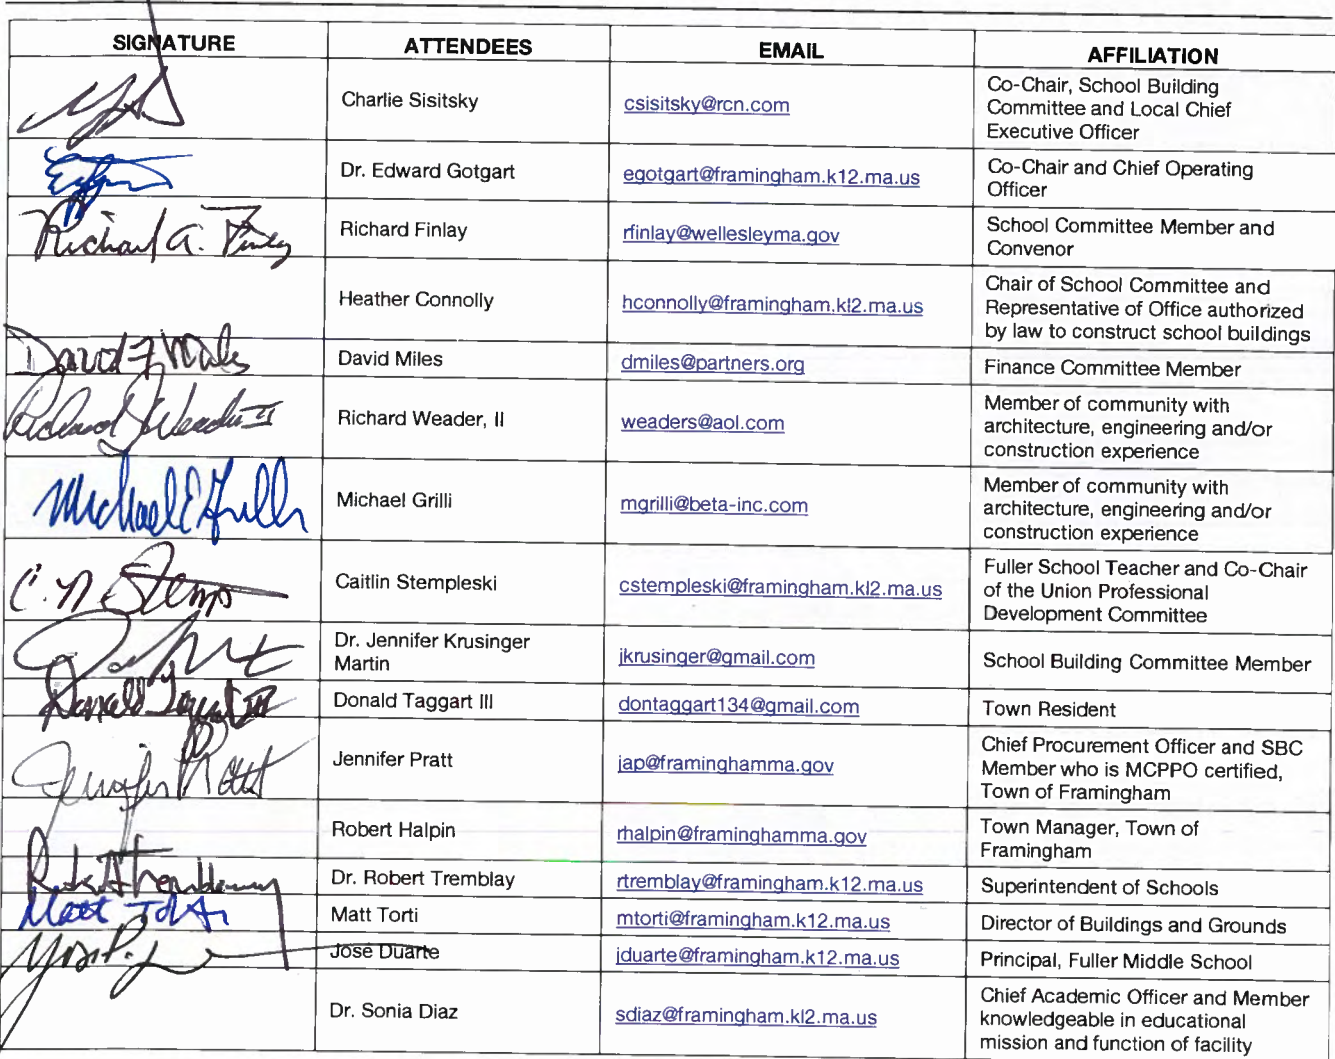 SIGNATURE ATTENDEES EMAIL AFFILIATION
Charlie Sisitsky csisitsky@rcn.com Co-Chair, School Building
Committee and Local Chief
Executive Officer
Dr. Edward Gotgart egotgart@framingham.k12.ma.us Co-Chair and Chief Operating
Officer
Richard A. Finlay Richard Finlay rfinlay@wellesleyma.gov School Committee Member and
Convenor
Heather Connolly hconnolly@framingham.kl2.ma.us Chair of School Committee and
Representative of Office authorized
by law to construct school buildings
David F Miles David Miles dmiles@partners.org Finance Committee Member
Richard J Weader II Richard Weader, II weaders@aol.com Member of community with
architecture, engineering and/or
construction experience
Michael E Grilli Michael Grilli mgrilli@beta-inc.com Member of community with
architecture, engineering and/or
construction experience
C. N Stemp Caitlin Stempleski cstempleski@framingham.kl2.ma.us Fuller School Teacher and Co-Chair
of the Union Professional
Development Committee
Dr. Jennifer Krusinger
Martin jkrusinger@gmail.com School Building Committee Member
Donald Taggart III Donald Taggart III dontaggart134@gmail.com Town Resident
Jennifer Pratt Jennifer Pratt jap@framinghamma.gov Chief Procurement Officer and SBC
Member who is MCPPO certified,
Town of Framingham
Robert Halpin rhalpin@framinghamma.gov Town Manager, Town of
Framingham
Dr. Robert Tremblay rtremblay@framingham.k12.ma.us Superintendent of Schools
Matt Torti Matt Torti mtorti@framingham.k12.ma.us Director of Buildings and Grounds
José Duarte jduarte@framingham.k12.ma.us Principal, Fuller Middle School
Dr. Sonia Diaz sdiaz@framingham.kl2.ma.us Chief Academic Officer and Member
knowledgeable in educational
mission and function of facility